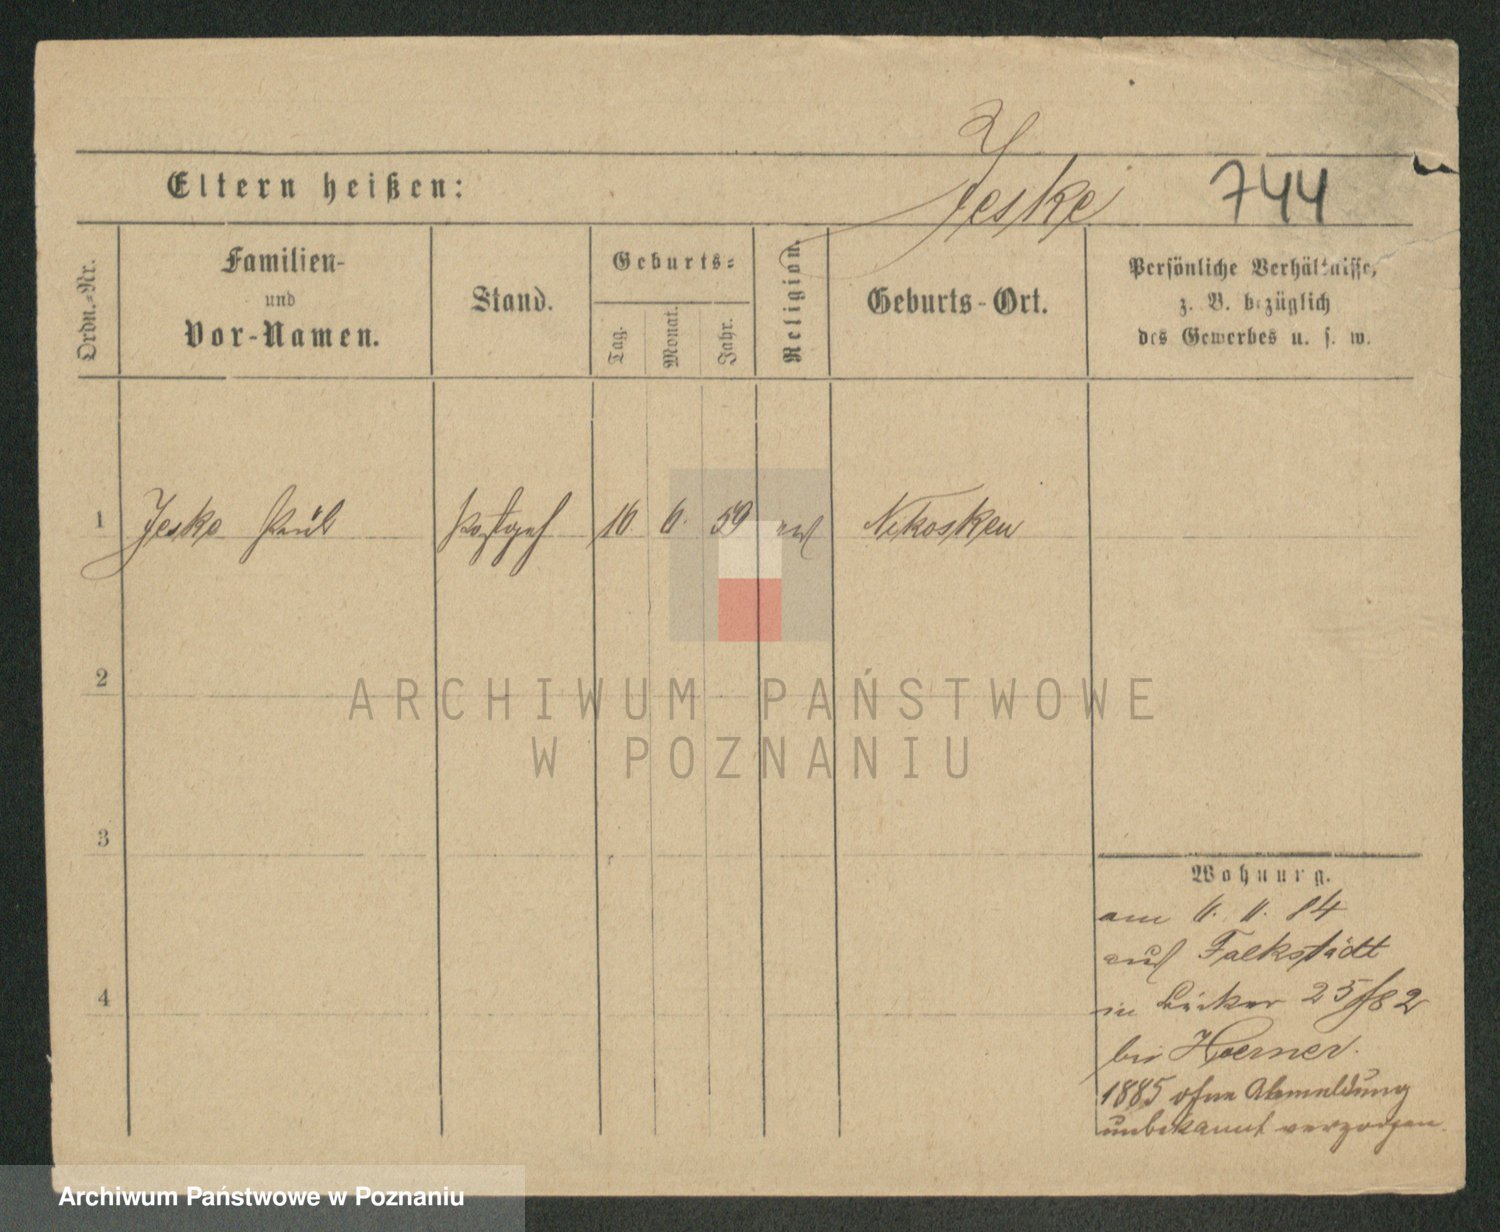 Jeske
Eltern heißen:
744
Ordn.-Nr.
Familien-
und
Vor-Namen.
Stand.
Geburts-
Tag.
Monat.
Jahr.
Religion.
Geburts-Ort.
Persönliche Verhältnisse,
z. B. bezüglich
des Gewerbes u. s. w.
1 Jeske Paul Postgeh 16 6. 59 ev Nekosken
2
3
4
Wohnung.
am 11. 84
auf
in 25/82
bei Hoerner.
1885 ohne Abmeldung
unbekannt verzogen.
ARCHIWUM PAŃSTWOWE
W POZNANIU
Archiwum Państwowe w Poznaniu